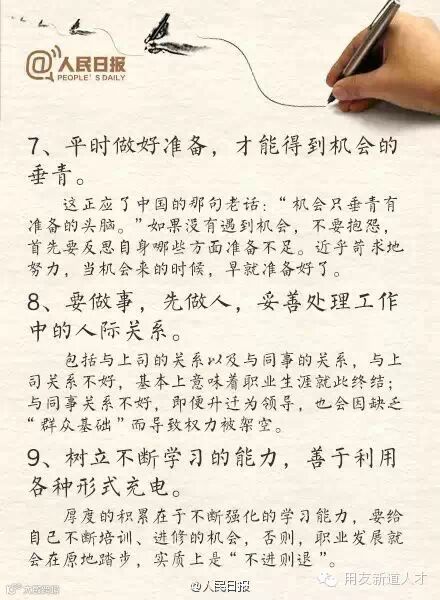 @人民日报
PEOPLE'S DAILY
7、平时做好准备，才能得到机会的
垂青。
这正应了中国的那句老话：“机会只垂青有
准备的头脑。”如果没有遇到机会，不要抱怨，
首先要反思自身哪些方面准备不足。近乎苛求地
努力，当机会来的时候，早就准备好了。
8、要做事，先做人，妥善处理工作
中的人际关系。
包括与上司的关系以及与同事的关系，与上
司关系不好，基本上意味着职业生涯就此终结；
与同事关系不好，即便升迁为领导，也会因缺乏
“群众基础”而导致权力被架空。
9、树立不断学习的能力，善于利用
各种形式充电。
厚度的积累在于不断强化的学习能力，要给
自己不断培训、进修的机会，否则，职业发展就
会在原地踏步，实质上是“不进则退”。
@人民日报
用友新道人才